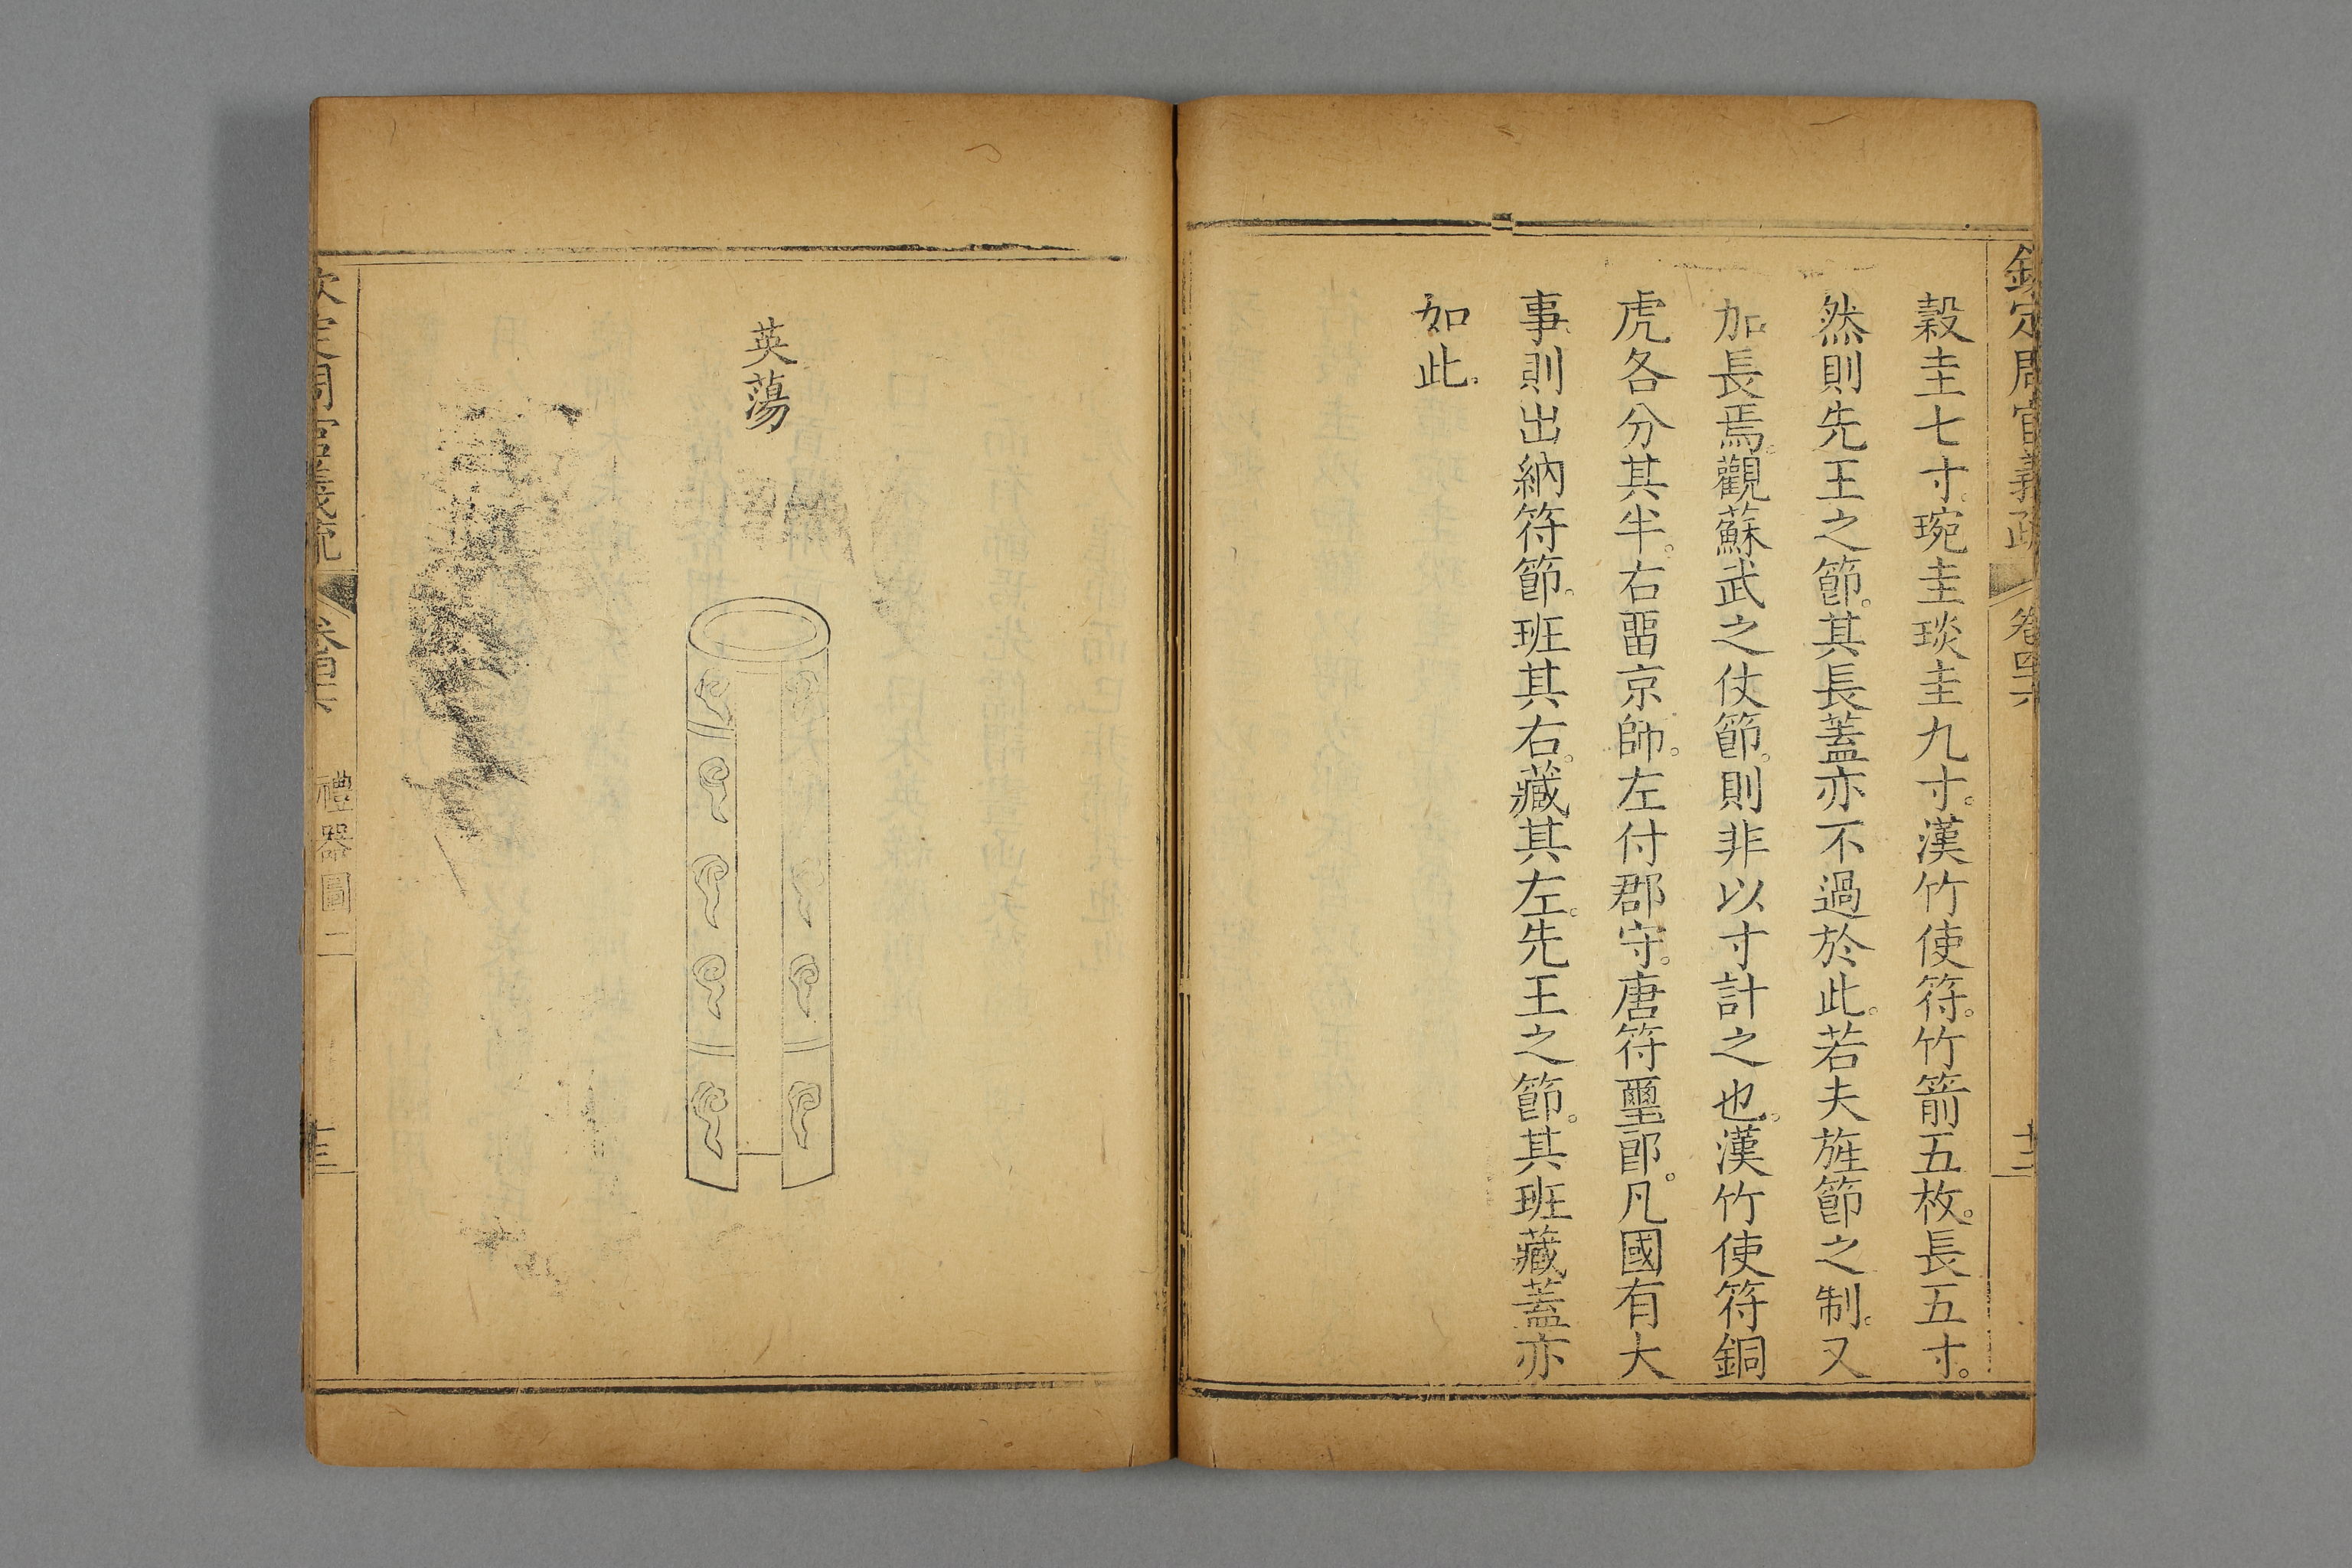 欽定周官義疏 卷四十六 十二
穀圭七寸。琬圭琰圭九寸。漢竹使符。竹箭五枚。長五寸。
然則先王之節。其長蓋亦不過於此。若夫旌節之制。又
加長焉。觀蘇武之仗節。則非以寸計之也。漢竹使符銅
虎各分其半。右畱京師。左付郡守。唐符璽郎。凡國有大
事。則出納符節。班其右。藏其左。先王之節。其班藏蓋亦
如此。
英蕩
欽定周官義疏 卷四十六 禮器圖二 十三